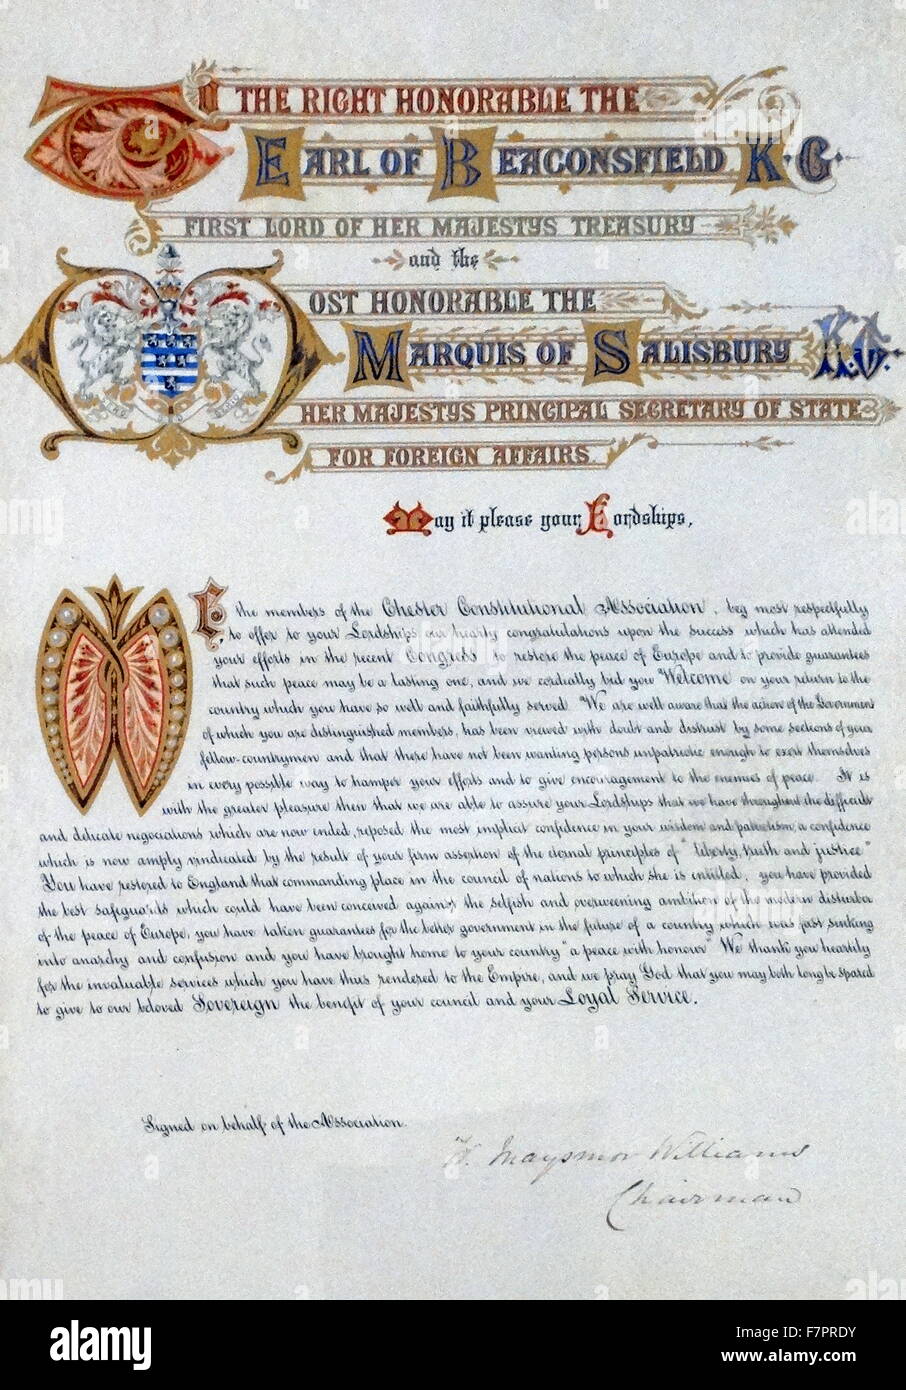 TO THE RIGHT HONORABLE THE
EARL OF BEACONSFIELD K.G.
FIRST LORD OF HER MAJESTYS TREASURY
and the
MOST HONORABLE THE
MARQUIS OF SALISBURY K.G.
HER MAJESTYS PRINCIPAL SECRETARY OF STATE
FOR FOREIGN AFFAIRS.
May it please your Lordships,
We, the members of the Chester Constitutional Association, beg most respectfully
to offer to your Lordships our hearty congratulations upon the success which has attended
your efforts in the recent Congress to restore the peace of Europe and to provide guarantees
that such peace may be a lasting one, and we cordially bid you "Welcome" on your return to the
country which you have so well and faithfully served. We are well aware that the action of the Government
of which you are distinguished members, has been viewed with doubt and distrust by some sections of your
fellow-countrymen and that there have not been wanting persons unpatriotic enough to exert themselves
in every possible way to hamper your efforts and to give encouragement to the enemies of peace. It is
with the greater pleasure then that we are able to assure your Lordships that we have throughout the difficult
and delicate negociations which are now ended, reposed the most implicit confidence in your wisdom and patriotism, a confidence
which is now amply vindicated by the result of your firm assertion of the eternal principles of "liberty, truth and justice"
You have restored to England that commanding place in the council of nations to which she is entitled, you have provided
the best safeguards which could have been conceived against the selfish and overweening ambition of the modern disturber
of the peace of Europe, you have taken guarantees for the better government in the future of a country which was fast sinking
into anarchy and confusion and you have brought home to your country "a peace with honour" We thank you heartily
for the invaluable services which you have thus rendered to the Empire, and we pray God that you may both long be spared
to give to our beloved Sovereign the benefit of your council and your Loyal Service.
Signed on behalf of the Association.
Maysmor Williams
Chairman
alamy
Image ID: F7PRDY
www.alamy.com